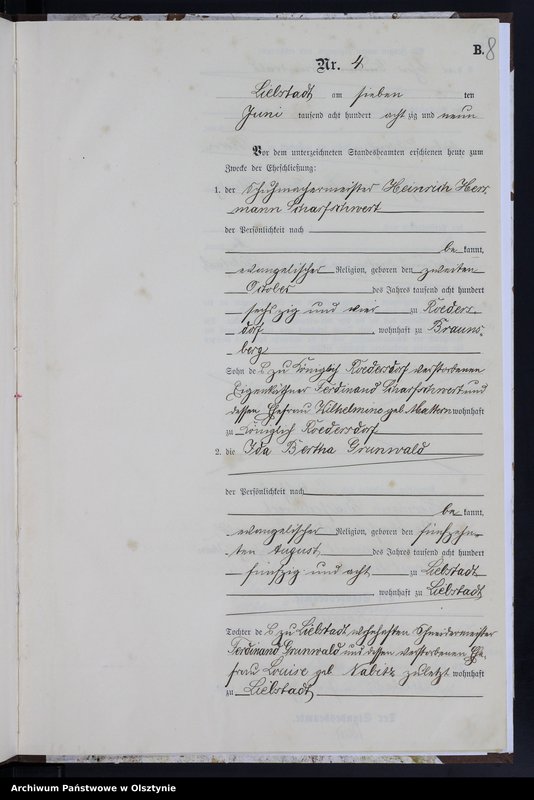 B. 8
Nr. 4
Liebstadt am sieben ten
Juni tausend acht hundert acht zig und neun
Vor dem unterzeichneten Standesbeamten erschienen heute zum
Zwecke der Eheschließung:
1. der Schuhmachermeister Heinrich Herr
mann Scharfschwert
der Persönlichkeit nach
be kannt,
evangelischer Religion, geboren den zweiten
October des Jahres tausend acht hundert
sechszig und vier zu Roeders
dorf, wohnhaft zu Brauns
berg
Sohn des zu Königlich Roedersdorf verstorbenen
Eigenkäthner Ferdinand Scharfschwert und
dessen Ehefrau Wilhelmine geb. Mattern wohnhaft
zu Königlich Roedersdorf
2. die Ida Bertha Grunwald
der Persönlichkeit nach
be kannt,
evangelischer Religion, geboren den fünfzehn
ten August des Jahres tausend acht hundert
fünfzig und acht zu Liebstadt
, wohnhaft zu Liebstadt
Tochter des zu Liebstadt wohnhaften Schneidermeister
Ferdinand Grunwald und dessen verstorbenen Ehe
frau Louise geb Nabitz zuletzt wohnhaft
zu Liebstadt
Archiwum Państwowe w Olsztynie